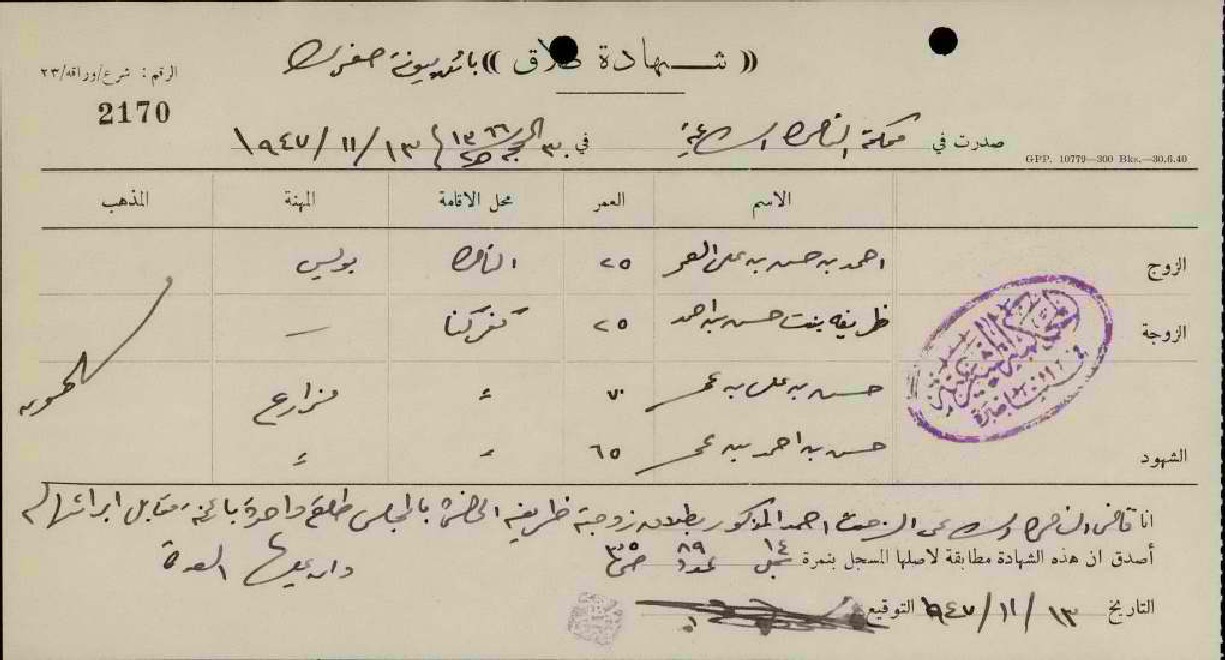 الرقم : شرع/وراقه/٢٣
2170
(( شهادة طلاق )) بائن بينونة صغرى
صدرت في محكمة الناصرة الشرعية في ٣٠ الحجة ١٣٦٦ ١٣/١١/١٩٤٧
GPP. 10779—300 Bks.—30.6.40
الاسم العمر محل الاقامة المهنة المذهب
الزوج احمد بن حسن بن علي العمر ٢٥ الناصرة بوليس
الزوجة ظريفه بنت حسن بن احمد ٢٥ كفركنا —
حسن بن علي بن عمر ٧٠ مزارع
الشهود حسن بن احمد بن عمر ٦٥
انا قاضي الناصرة احمد المذكور بطلاق زوجته ظريفه الحاضرة بالمجلس طلقة واحدة بائنة مقابل ابرائها له
أصدق ان هذه الشهادة مطابقة لاصلها المسجل بنمرة ١٤ ٨٩ عدد ٣٥
وان عليها العدة
التاريخ ١٣/١١/٩٤٧ التوقيع